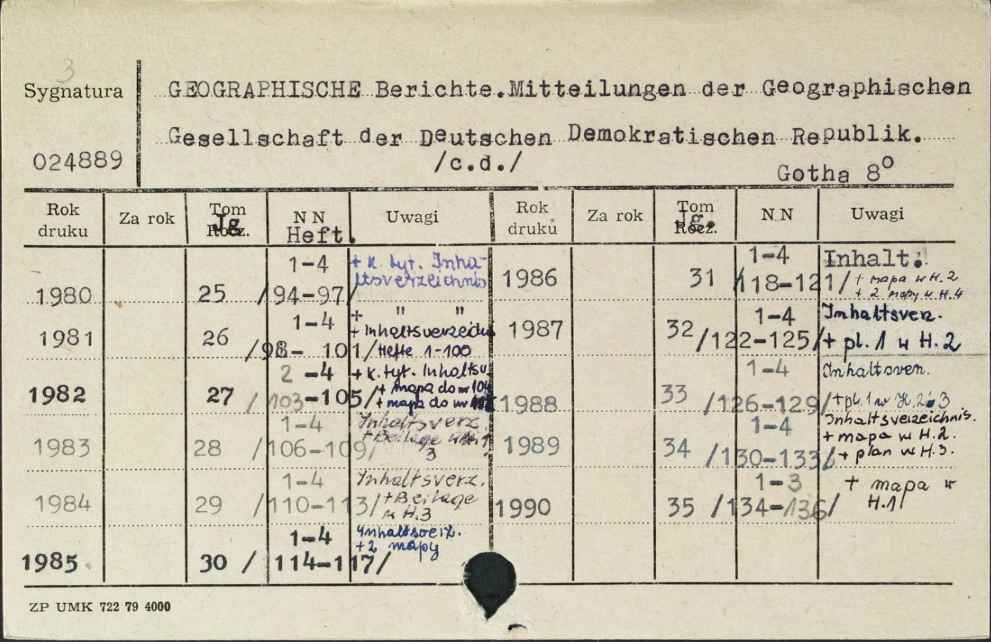 3
Sygnatura
024889
GEOGRAPHISCHE Berichte.Mitteilungen der Geographischen
Gesellschaft der Deutschen Demokratischen Republik.
/c.d./
Gotha 8°
Rok druku Za rok Tom Jg. Rocz. NN Heft. Uwagi Rok druku Za rok Tom Jg. Rocz. N.N Uwagi
1980 25 1-4 /94-97/ + k. tyt. Inha-
ltsverzeichnis
1981 26 1-4 /98- 101/ + " "
+ Inhaltsverzeichn
Hefte 1-100
1982 27 2 -4 /103-105/ + k. tyt. Inhaltsv
+ mapa do w 104
+ mapa do w
1983 28 1-4 /106-109/ Inhaltsverz.
+ Beilage w H. 1
3
1984 29 1-4 /110-113/ Inhaltsverz.
+ Beilage
w H.3
1985 30 1-4 /114-117/ Inhaltsverz.
+2 mapy
1986 31 1-4 /118-121/ Inhalt.
+ mapa w H.2
+ 2 mapy w H.4
1987 32 1-4 /122-125/ Inhaltsverz.
+ pl. 1 w H. 2
1988 33 1-4 /126-129/ Inhaltsverz.
+pl.1 w H. 2 3
1989 34 1-4 /130-133/ Inhaltsverzeichnis.
+ mapa w H.2.
+ plan w H.3.
1990 35 1-3 /134-136/ + mapa w
H.1
ZP UMK 722 79 4000